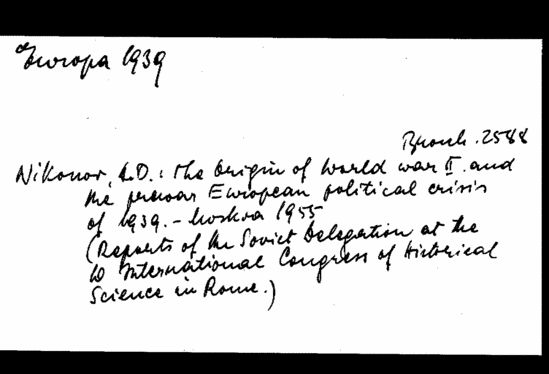 Europa 1939
Brosch. 2588
Nikonov, A.D.: The Origin of World war II. and
the prewar European political crisis
of 1939. - Moskva 1955
(Reports of the Soviet Delegation at the
10 International Congress of Historical
Science in Rome.)